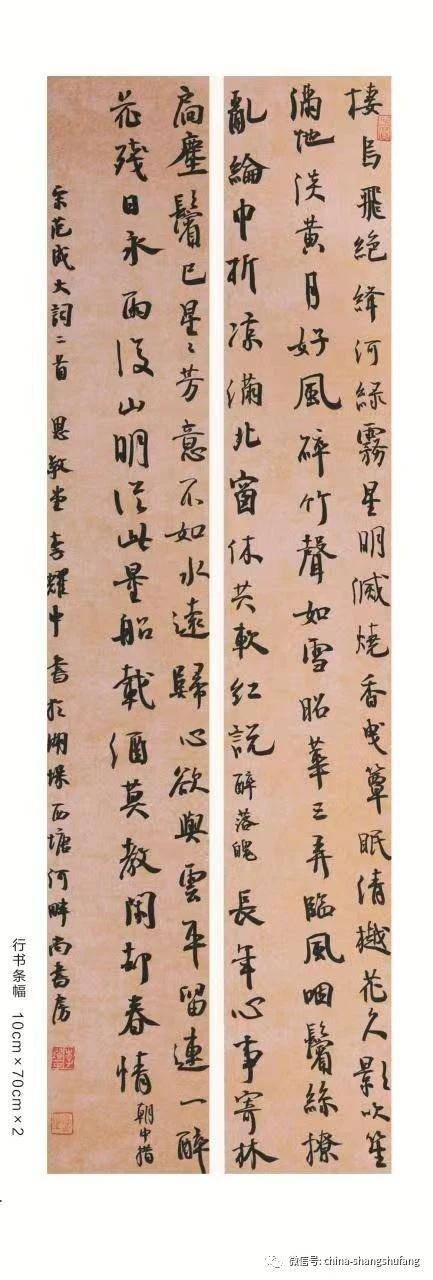 棲烏飛絕絳河綠霧星明滅燒香曳簟眠清樾花久影吹笙
滿地淡黃月好風碎竹聲如雪昭華三弄臨風咽鬢絲撩
亂綸巾折涼滿北窗休共軟紅說 醉落魄 長年心事寄林
扃塵鬢已星〻芳意不如水遠歸心欲與雲平留連一醉
花殘日永雨後山明從此量船載酒莫教閑却春情 朝中措
宋范成大詞二首 敬堂 李耀中書於湖垛西塘河畔尚書房
行书条幅 10cm×70cm×2
微信号: china-shangshufang